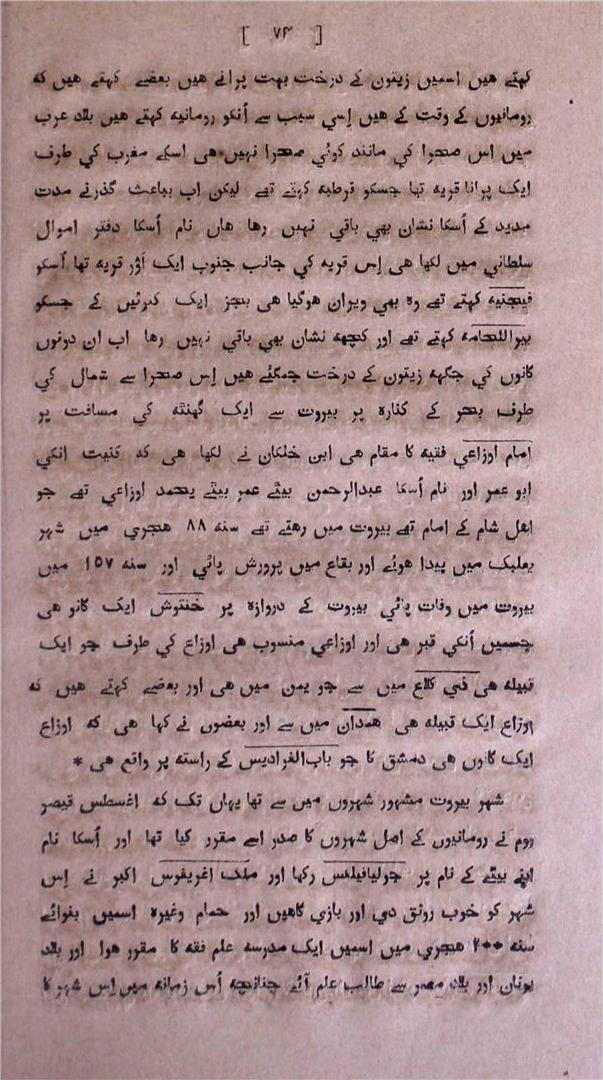 [ ۷۴ ]
کہتے ھیں اسمیں زیتون کے درخت بہت پرانے ھیں بعضے کہتے ھیں کہ
رومانیوں کے وقت کے ھیں اِسي سبب سے اُنکو رومانیہ کہتے ھیں بلاد عرب
میں اس صحرا کي مانند کوئي صحرا نہیں ھی اسکے مغرب کي طرف
ایک پرانا قریہ تھا جسکو قرطبہ کہتے تھے لیکن اب بباعث گذرنے مدت
مدید کے اُسکا نشان بھي باقي نہیں رھا ھاں نام اُسکا دفتر اموال
سلطاني میں لکھا ھی اِس قریہ کي جانب جنوب ایک اَوْر قریہ تھا اُسکو
کہتے تھے وہ بھي ویران ھوگیا ھی بجز ایک کنوئیں کے جسکو
بیراللحامہ کہتے تھے اور کچھہ نشان بھي باقي نہیں رھا اب ان دونوں
گانوں کي جگہہ زیتون کے درخت جمگئے ھیں اِس صحرا سے شمال کي
طرف بحر کے کنارہ پر بیروت سے ایک گھنٹہ کي مسافت پر
امام اوزاعي فقیہ کا مقام ھی ابن خلکان نے لکھا ھی کہ کنیت انکي
ابو عمر اور نام اُسکا عبدالرحمن بیٹے عمر بیٹے یحمد اوزاعي تھے جو
اھل شام کے امام تھے بیروت میں رھتے تھے سنہ ۸۸ ھجري میں شہر
بعلبک میں پیدا ھوئے اور بقاع میں پرورش پائي اور سنہ ۱۵۷ میں
بیروت میں وفات پائي بیروت کے دروازہ پر خنتوش ایک گانو ھی
جسمیں اُنکي قبر ھی اور اوزاعي منسوب ھی اوزاع کي طرف جو ایک
قبیلہ ھی ذي کلاع میں سے جو یمن میں ھی اور بعضے کہتے ھیں کہ
اوزاع ایک قبیلہ ھی ھمدان میں سے اور بعضوں نے کہا ھی کہ اوزاع
ایک گانوں ھی دمشق کا جو باب الفرادیس کے راستہ پر واقع ھی *
شہر بیروت مشہور شہروں میں سے تھا یہاں تک کہ اغسطس قیصر
روم نے رومانیوں کے اصل شہروں کا صدر اسے مقرر کیا تھا اور اُسکا نام
اپنے بیٹے کے نام پر جولیافیلکس رکھا اور ملک اغریفوس اکبر نے اِس
شہر کو خوب رونق دي اور بازي گاھیں اور حمام وغیرہ اسمیں بنوائے
سنہ ۲۰۰ ھجري میں اسمیں ایک مدرسہ علم فقہ کا مقرر ھوا اور بلاد
یونان اور بلاد مصر سے طالب علم آئے چنانچہ اُس زمانہ میں اِس شہر کا